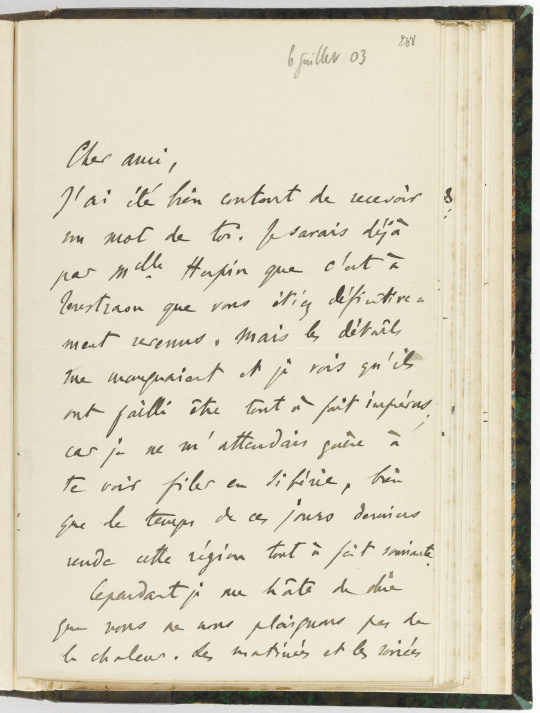 288
6 juillet 03
Cher ami,
J'ai été bien content de recevoir
un mot de toi. Je savais déjà
par Melle Herpin que c'est à
que vous étiez définitive-
ment revenus. Mais les détails
me manquaient et je vois qu'ils
ont failli être tout à fait imprévus,
car je ne m'attendais guère à
te voir filer en Sibérie, bien
que le temps de ces jours derniers
rende cette région tout à fait souriante.
Cependant je me hâte de dire
que nous ne nous plaignons pas de
la chaleur. Les matinées et les soirées